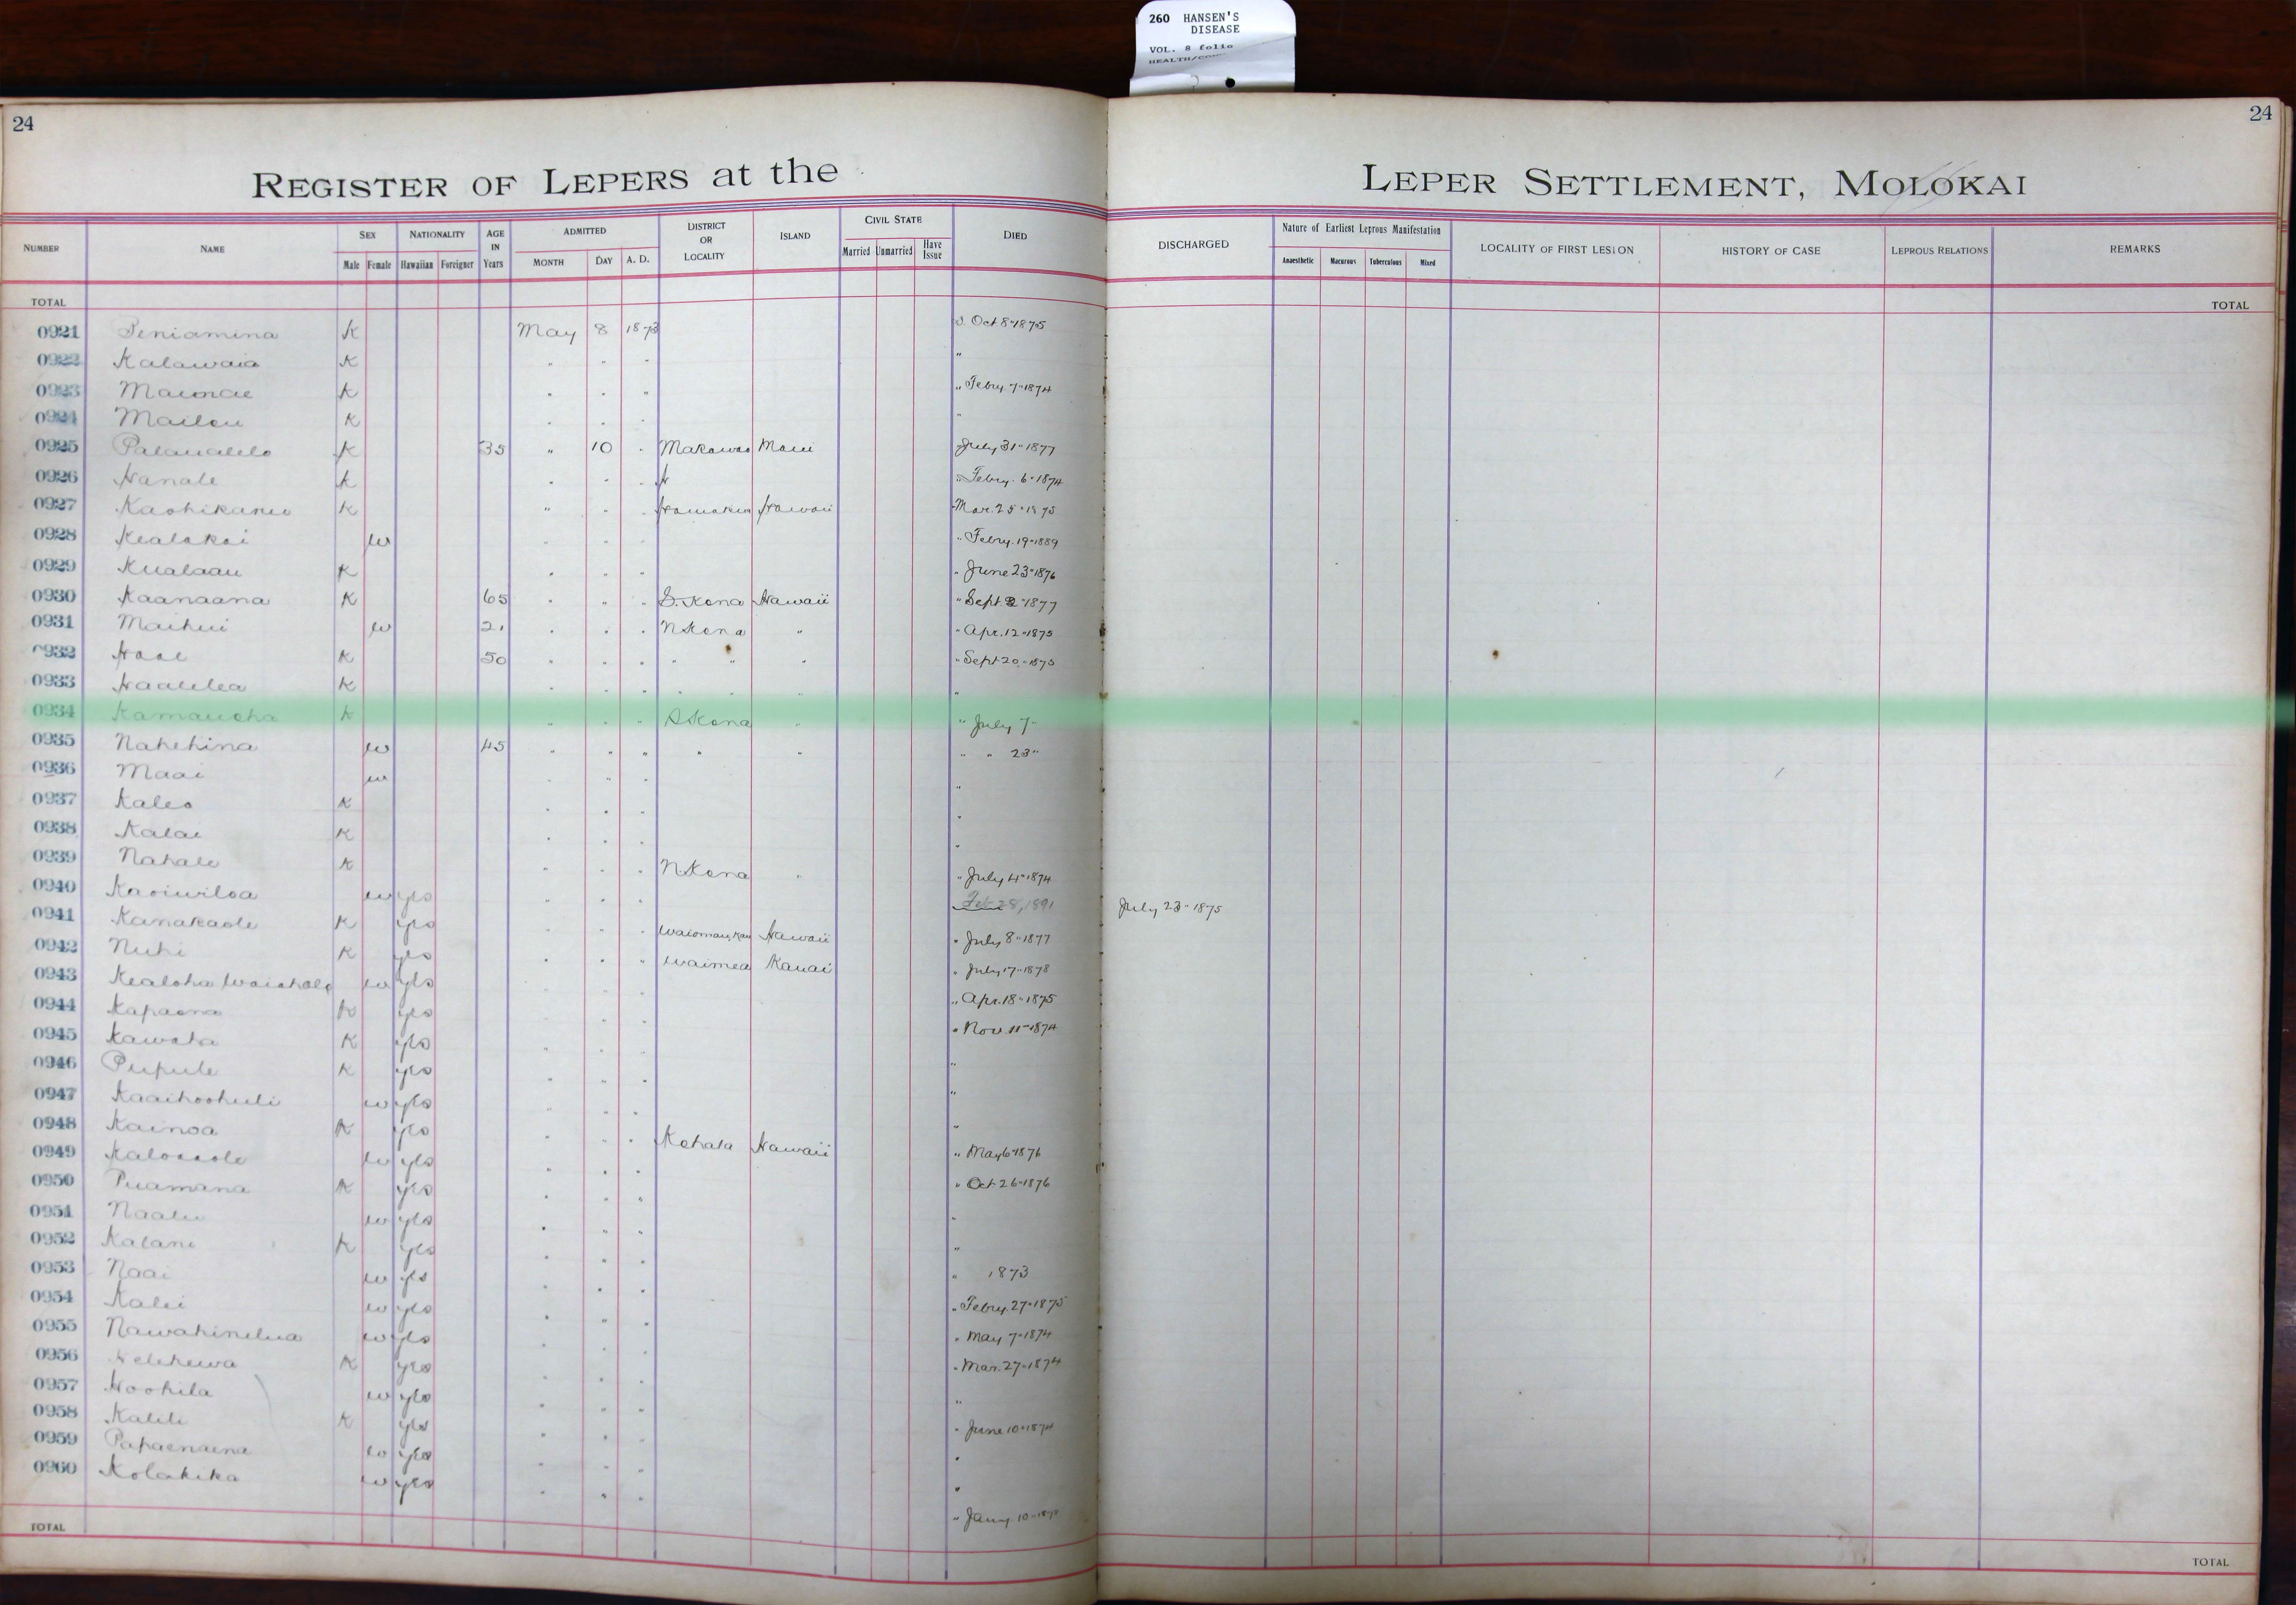 260 HANSEN'S
DISEASE
VOL. 8 folio
24
24
REGISTER OF LEPERS at the LEPER SETTLEMENT, MOLOKAI
NUMBER NAME SEX NATIONALITY AGE IN Years ADMITTED DISTRICT OR LOCALITY ISLAND CIVIL STATE DIED DISCHARGED Nature of Earliest Leprous Manifestation LOCALITY OF FIRST LESION HISTORY OF CASE LEPROUS RELATIONS REMARKS
Male Female Hawaiian Foreigner MONTH DAY A. D. Married Unmarried Have Issue Anaesthetic Macurous Tuberculous Mixed
TOTAL TOTAL
0921 Peniamina K May 8 1873 Oct 8" 1875
0922 Kalawaia K " " " "
0923 K " " " " Febry. 7" 1874
0924 K " " " "
0925 K 35 " 10 " Makawao Maui July 31" 1877
0926 Hanale K " " " " Febry. 6" 1874
0927 K " " " Hamakua Hawaii Mar. 25" 1875
0928 Kealakai w " " " " Febry. 19" 1889
0929 Kualaau K " " " " June 23" 1876
0930 Kaanaana K 65 " " " S. Kona Hawaii " Sept 2" 1877
0931 Maihui w 21 " " " N Kona " " Apr. 12" 1875
0932 K 50 " " " " " " " Sept 20" 1875
0933 Haalelea K " " " " " " "
0934 Kamauoha K " " " S Kona " " July 7"
0935 Nahehina w 45 " " " " " " " 23"
0936 Maai w " " " "
0937 Kaleo K " " " "
0938 Kalai K " " " "
0939 Nahale K " " " N Kona " " July 4" 1874
0940 Kaoiwiloa w yes " " " Feb 28, 1891 July 23" 1875
0941 Kanakaole K yes " " " Hawaii " July 8" 1877
0942 Nuhi K yes " " " Waimea Kauai " July 17" 1878
0943 Kealoha w yes " " " " Apr. 18" 1875
0944 Kapaona K yes " " " " Nov. 11" 1874
0945 Kawaha K yes " " " "
0946 Pupule K yes " " " "
0947 Kaaihoohuli w yes " " " "
0948 Kainoa K yes " " " Kohala Hawaii " May 6" 1876
0949 w yes " " " " Oct 26" 1876
0950 Puamana K yes " " " "
0951 w yes " " " "
0952 Kalani K yes " " " " 1873
0953 Naai w yes " " " " Febry. 27" 1875
0954 Kalei w yes " " " " May 7" 1874
0955 w yes " " " " Mar. 27" 1874
0956 K yes " " " "
0957 Hoohila w yes " " " " June 10" 1874
0958 Kalili K yes " " " "
0959 Papaenaena w yes " " " "
0960 Kolakika w yes " " " " Jany. 10"
TOTAL TOTAL